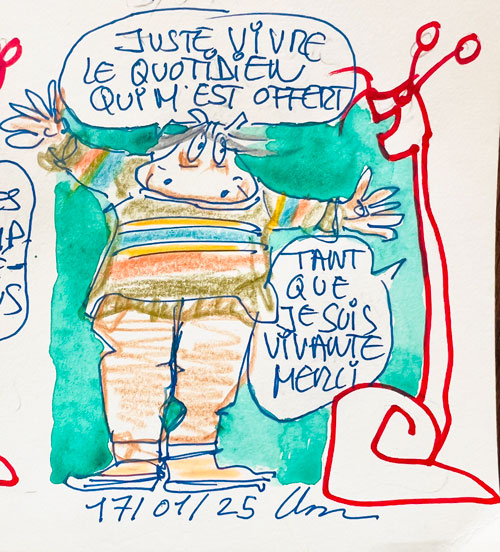 JUSTE VIVRE
LE QUOTIDIEN
QUI M'EST OFFERT
TANT
QUE
JE SUIS
VIVANTE
MERCI
17/01/25